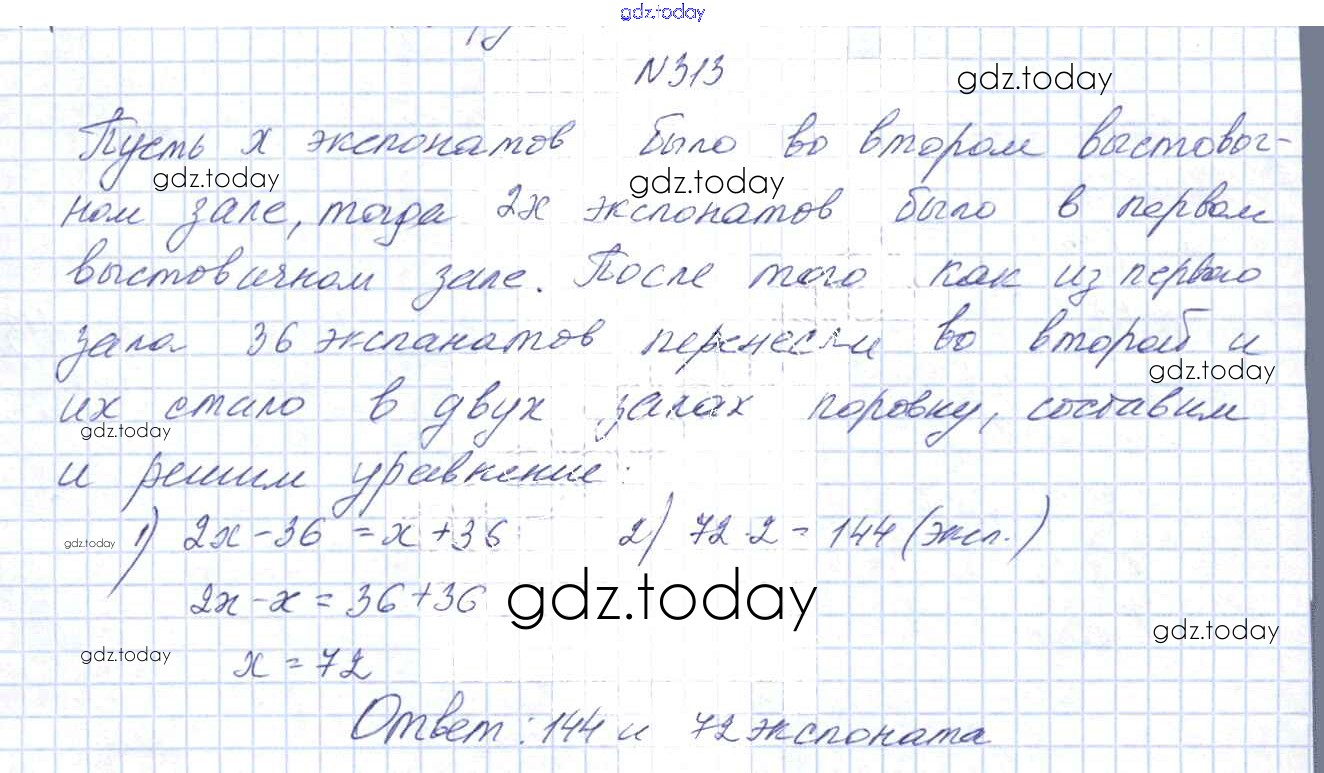 gdz.today
№313
gdz.today
Пусть x экспонатов было во втором выставоч-
gdz.today
gdz.today
ном зале, тогда 2x экспонатов было в первом
выстовичном зале. После того как из первого
зала 36 экспанатов перенесли во второй и
gdz.today
их стало в двух залах поровну, составим
gdz.today
и решим уравнение:
gdz.today 1) 2x-36 = x+36 2) 72·2 = 144 (эксп.)
2x-x = 36+36 gdz.today
gdz.today
gdz.today x = 72
Ответ: 144 и 72 экспоната